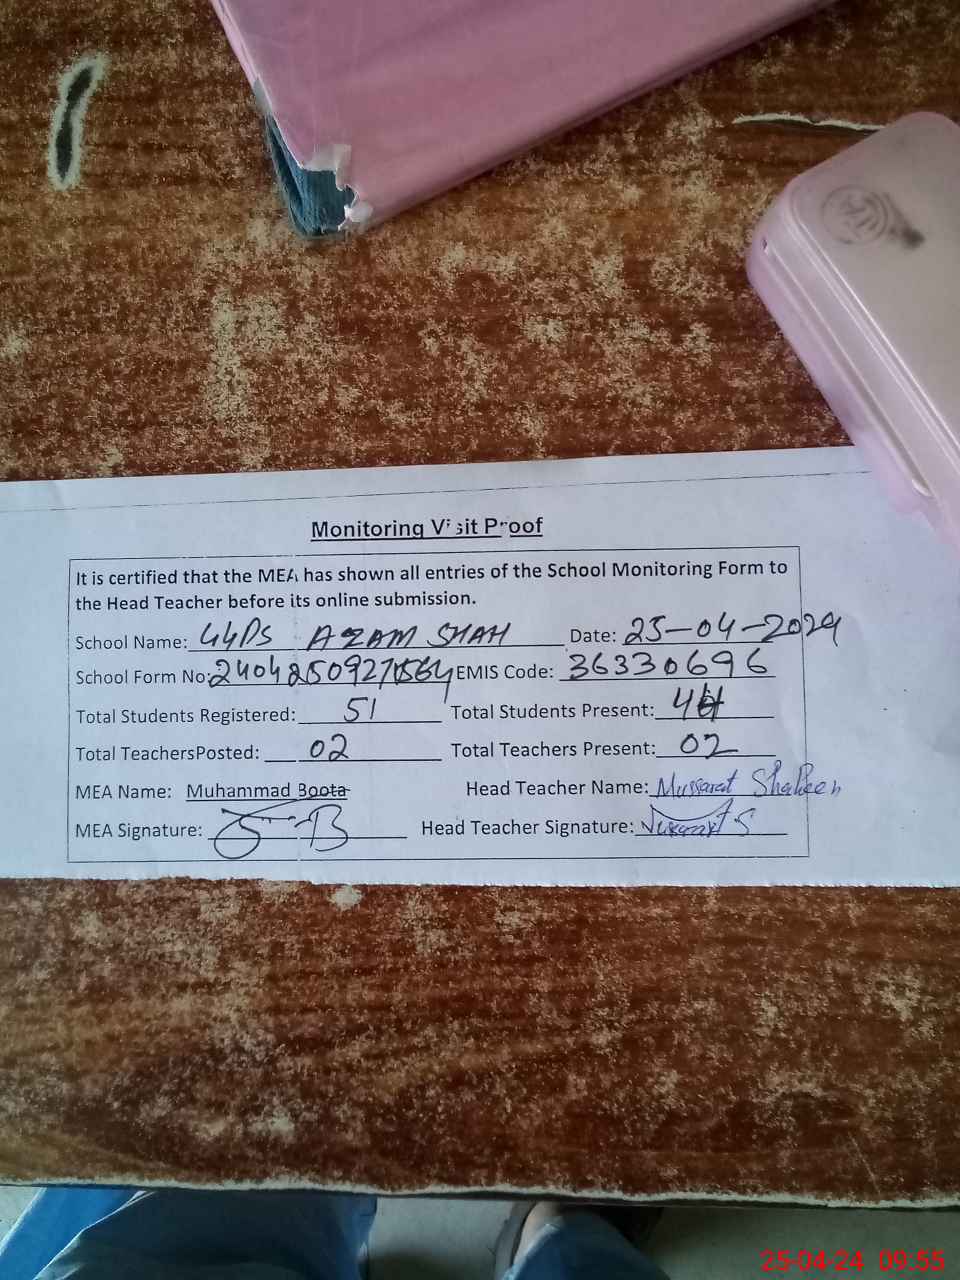 Monitoring Visit Proof
It is certified that the MEA has shown all entries of the School Monitoring Form to
the Head Teacher before its online submission.
School Name: GGPS AZAM SHAH Date: 25-04-2024
School Form No: EMIS Code: 36330696
Total Students Registered: 51 Total Students Present: 44
Total TeachersPosted: 02 Total Teachers Present: 02
MEA Name: Muhammad Boota Head Teacher Name: Mussarat Shaheen
MEA Signature: Head Teacher Signature:
25-04-24 09:55